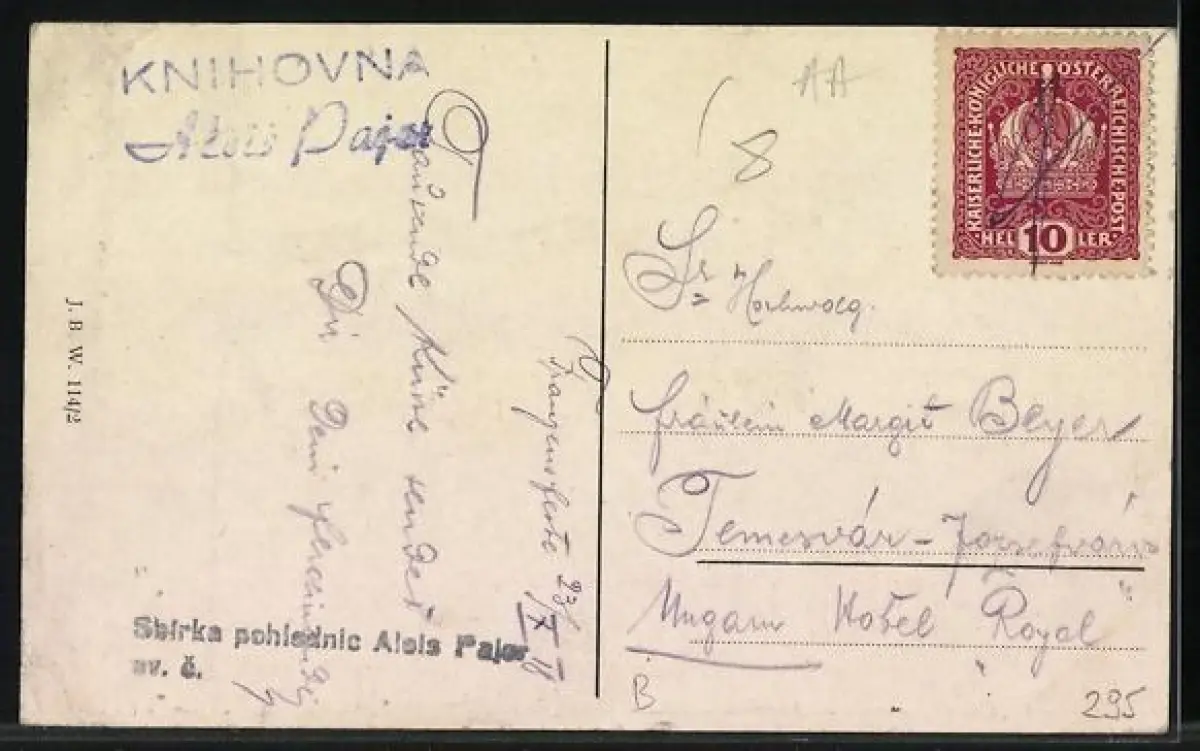 KNIHOVNA
Alois Pajer
J. B W. 114/2
Franzensfeste 23/X 18
Tausende Küsse sendet
Dir Dein
Sbírka pohlednic Alois Pajer
nv. č.
AA
8
KAISERLICHE KÖNIGLICHE ÖSTERREICHISCHE POST
HELLER
10
Sr Hochwolg.
Fräulein Margit Beyer
Temesvár - Józsefváris
Ungarn Hotel "Royal"
B
295